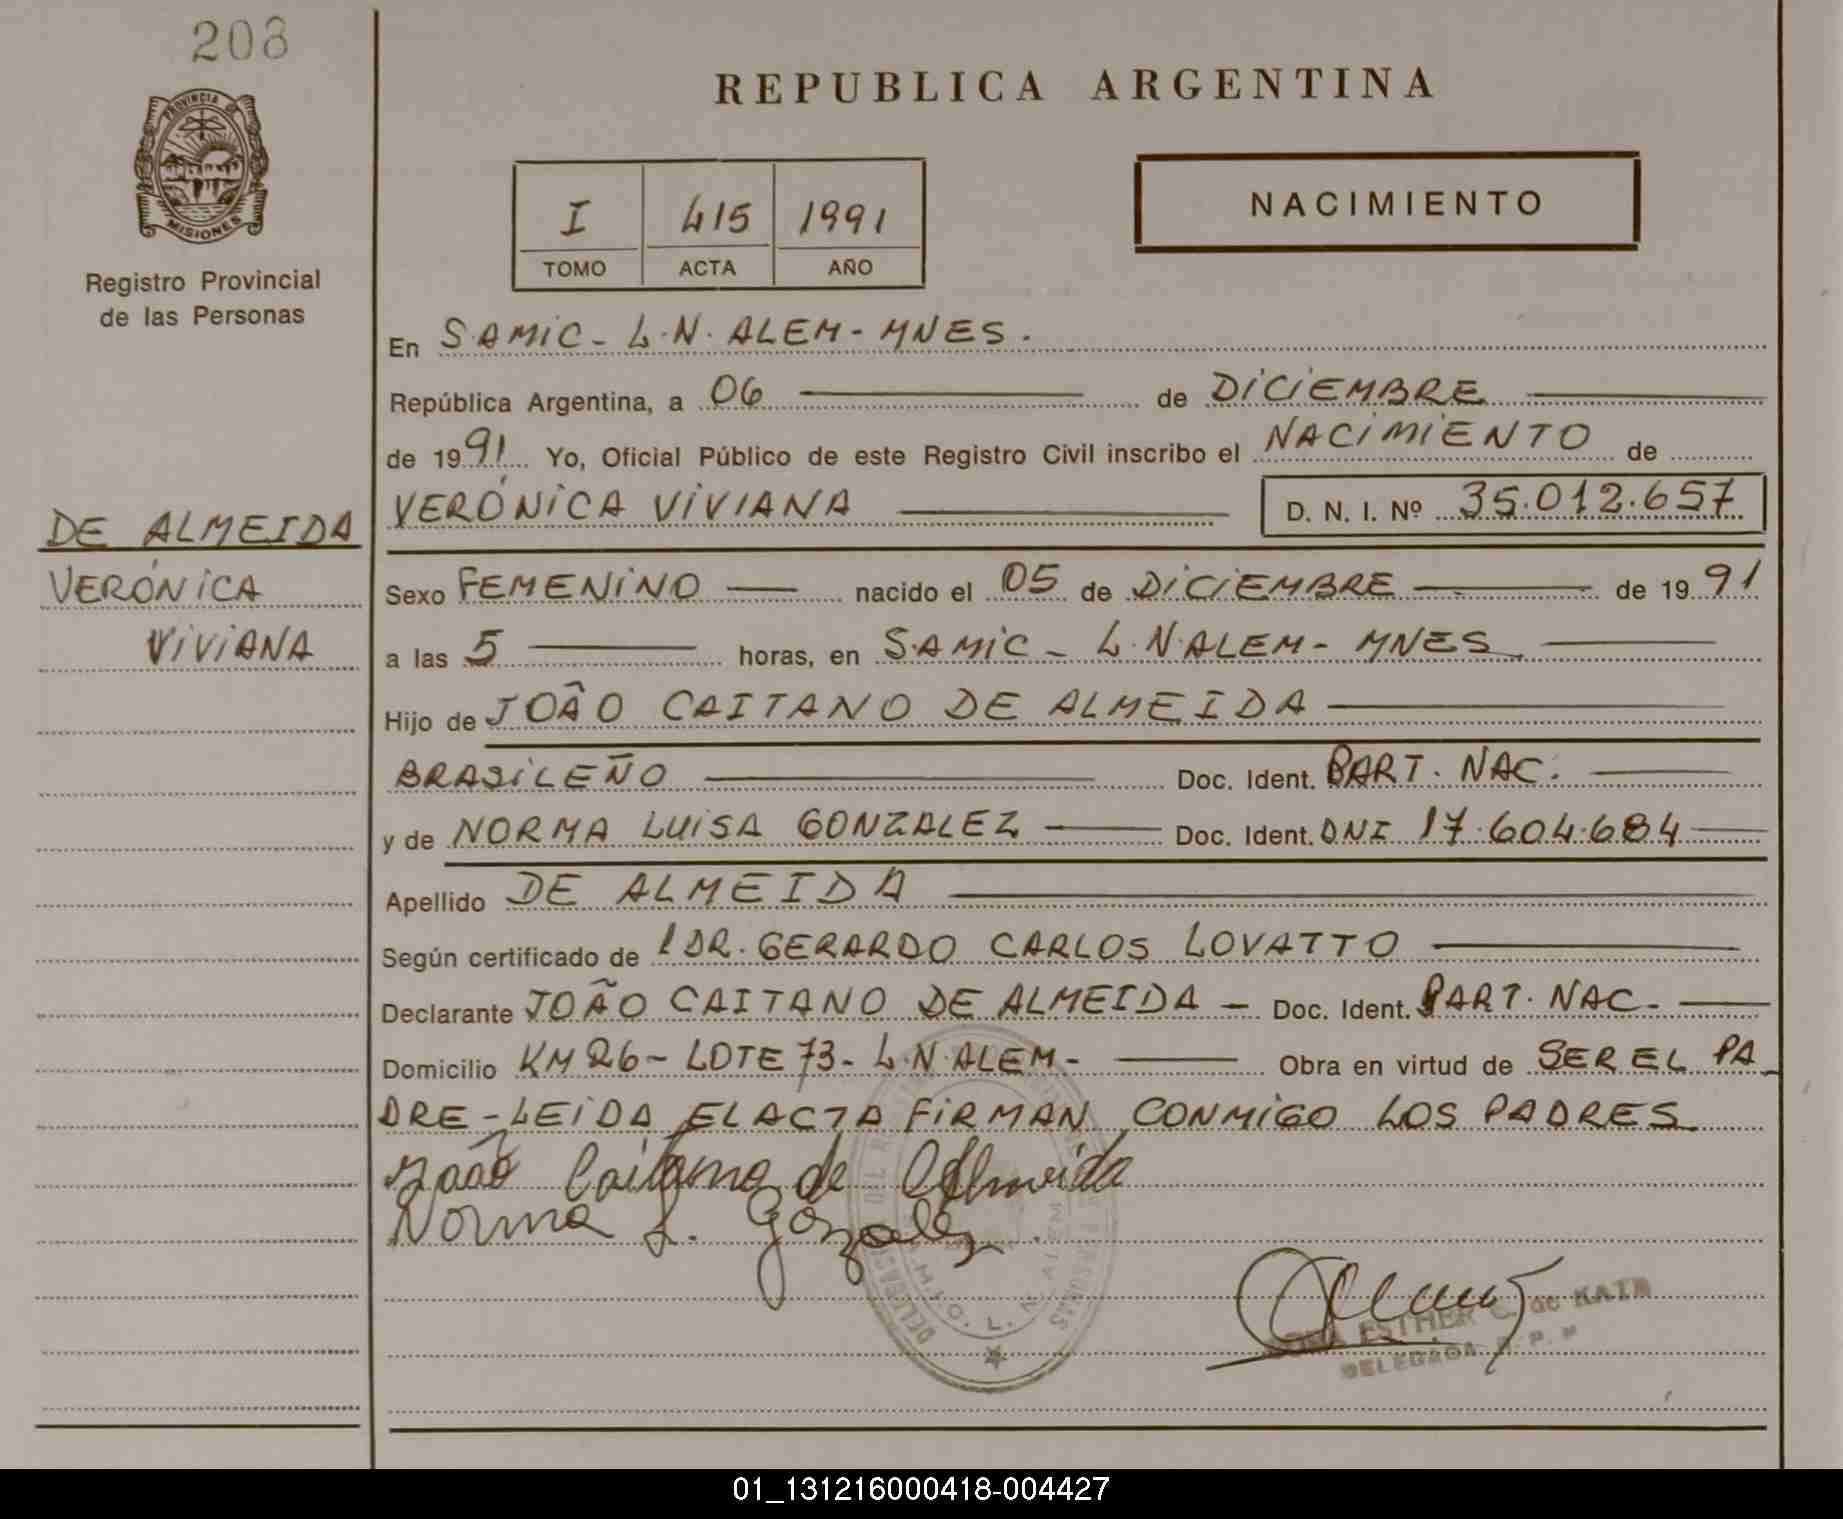 208
PROVINCIA
MISIONES
Registro Provincial
de las Personas
DE ALMEIDA
VERÓNICA
VIVIANA
REPUBLICA ARGENTINA
I 415 1991
TOMO ACTA AÑO
NACIMIENTO
En S.AMIC - L.N. ALEM - MNES.
República Argentina, a 06 de DICIEMBRE
de 1991 Yo, Oficial Público de este Registro Civil inscribo el NACIMIENTO de
VERÓNICA VIVIANA D. N. I. Nº 35.012.657
Sexo FEMENINO nacido el 05 de DICIEMBRE de 1991
a las 5 horas, en S.AMIC - L.N.ALEM - MNES
Hijo de JOÂO CAITANO DE ALMEIDA
BRASILEÑO Doc. Ident. PART. NAC.
y de NORMA LUISA GONZALEZ Doc. Ident. DNI 17.604.684
Apellido DE ALMEIDA
Según certificado de l DR. GERARDO CARLOS LOVATTO
Declarante JOÃO CAITANO DE ALMEIDA - Doc. Ident. PART. NAC.
Domicilio KM 26 - LOTE 73 - L.N.ALEM - Obra en virtud de SER EL PA_
DRE - LEIDA EL ACTA FIRMAN CONMIGO LOS PADRES
João Caitano de Almeida
Norma L. Gonzalez
ESTHER C. de KATZ
DELEGADA R. P. P.
01_131216000418-004427